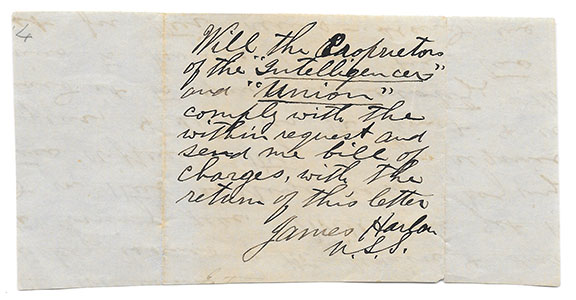 4
Will the Proprietors
of the "Intelligencer"
and "Union"
comply with the
within request and
send me bill of
charges, with the
return of this letter
James Harlan
U.S.S.